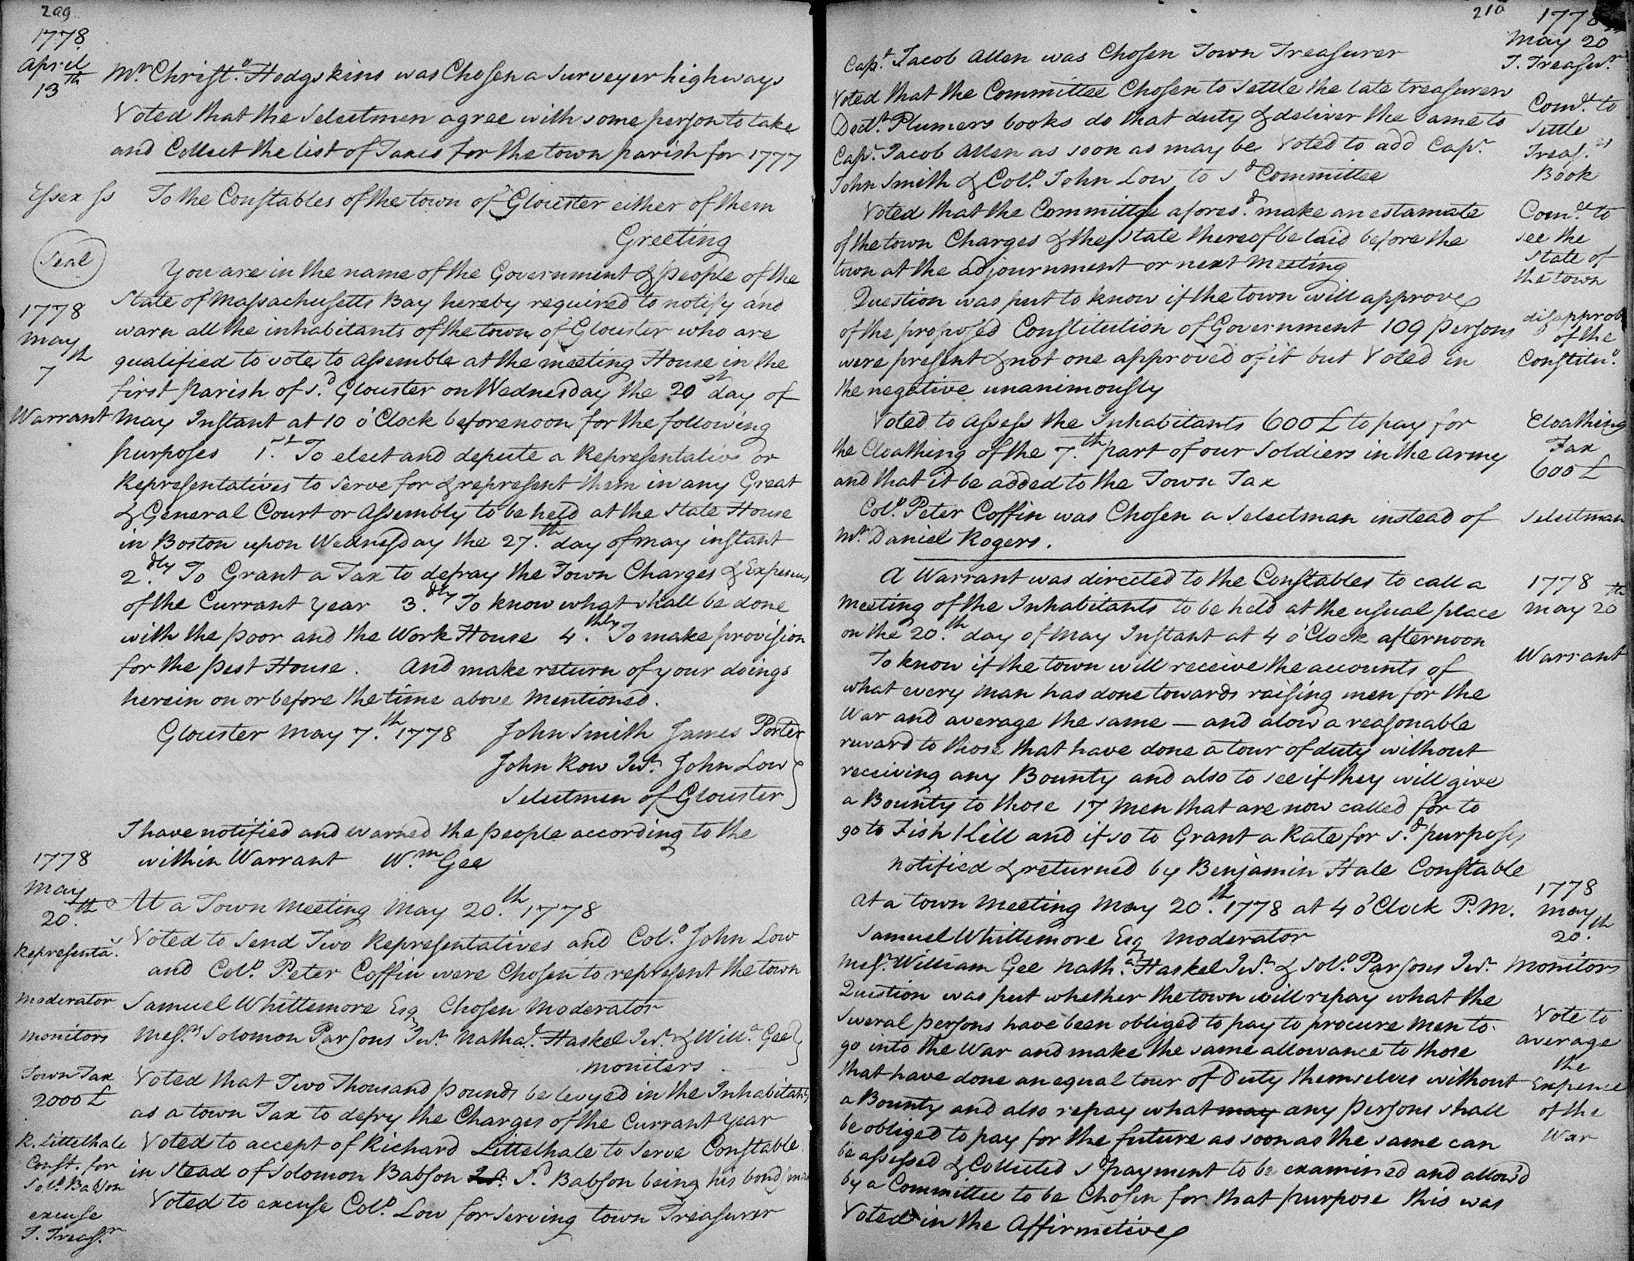 209
1778
April
13th
Mr. Christr. Hodgskins was Chosen a Surveyer highways
Voted that the Selectmen agree with some person to take
and Collect the list of Taxes for the town parish for 1777
Essex ss To the Constables of the town of Glocester either of them
Greeting
Seal
You are in the name of the Government & people of the
State of Massachusetts Bay hereby required to notify and
1778
May
7th
warn all the inhabitants of the town of Glocester who are
qualified to vote to assemble at the meeting House in the
first parish of sd. Glocester on Wednesday the 20th day of
Warrant
May Instant at 10 o'Clock beforenoon for the following
purposes 1.st To elect and depute a Representative or
Representatives to serve for & represent them in any Great
& General Court or Assembly to be held at the State House
in Boston upon Wednesday the 27.th day of may instant
2.dly To Grant a Tax to defray the Town Charges & Expences
of the Currant year 3.dly To know what shall be done
with the poor and the Work House 4.thly To make provision
for the pest House. And make return of your doings
herein on or before the time above mentioned.
Glocester May 7.th 1778 John Smith James Porter
John Row Jur. John Low
Selectmen of Glocester
I have notified and warned the people according to the
within Warrant Wm Gee
1778
May
20th
At a Town Meeting May 20.th 1778
Representa.
Voted to send Two Representatives and Colo. John Low
and Colo. Peter Coffin were Chosen to represent the town
moderator
Samuel Whittemore Esq Chosen Moderator
monitors
Messrs Solomon Parsons Jur. Nathal. Haskel Jur. & Willm. Gee
moniters
Town Tax
2000£
Voted that Two Thousand pounds be levyed in the Inhabitants
as a town Tax to defry the Charges of the Currant year
R. Littelhale
Const. for
Solo. Babson
Voted to accept of Richard Littelhale to serve Constable
in stead of Solomon Babson Sd Babson being his bondsman
excuse
T. Treasr.
Voted to excuse Colo. Low for serving town Treasurer
210
1778
May 20
T. Treasur.
Capt. Jacob Allen was Chosen Town Treasurer
Comt. to
Settle
Treasrs
Book
Voted that the Committee Chosen to settle the late treasurer
Doctr. Plumers books do that duty & deliver the same to
Capt. Jacob Allen as soon as may be Voted to add Capt.
John Smith & Colo. John Low to sd Committee
Comtt. to
see the
state of
the town
Voted that the Committe aforesd. make an estamate
of the town Charges & the State thereof be laid before the
town at the adjournment or next meeting
disapprob
of the
Constitun.
Question was put to know if the town will approve
of the proposed Constitution of Government 109 persons
were present & not one approved of it but Voted in
the negative unanimously
Cloathing
Tax
600£
Voted to assess the Inhabitants 600£ to pay for
the Cloathing of the 7.th part of our Soldiers in the Army
and that it be added to the Town Tax
Selectman
Colo. Peter Coffin was Chosen a Selectman instead of
Mr. Daniel Rogers.
1778
May 20th
A Warrant was directed to the Constables to call a
meeting of the Inhabitants to be held at the usual place
on the 20.th day of May Instant at 4 o'Clock afternoon
Warrant
To know if the town will receive the accounts of
what every man has done towards raising men for the
War and average the same — and alow a reasonable
reward to those that have done a tour of duty without
receiving any Bounty and also to see if they will give
a Bounty to those 17 men that are now called for to
go to Fish Kill and if so to Grant a Rate for sd. purposes
Notified & returned by Benjamin Hale Constable
1778
May
20.th
At a town Meeting May 20.th 1778 at 4 o'Clock P.M.
Samuel Whittemore Esq Moderator
Monitors
Messrs. William Gee Nathal. Haskel Jur. & Solo. Parsons Jur.
Vote to
average
the
Expence
of the
War
Question was put whether the town will repay what the
Several persons have been obliged to pay to procure men to
go into the War and make the same allowance to those
that have done an equal tour of Duty themselves without
a Bounty and also repay what may any persons shall
be obliged to pay for the future as soon as the same can
be assessed & Collected sd payment to be examined and allow'd
by a Committee to be Chosen for that purpose this was
Voted in the Affirmetive